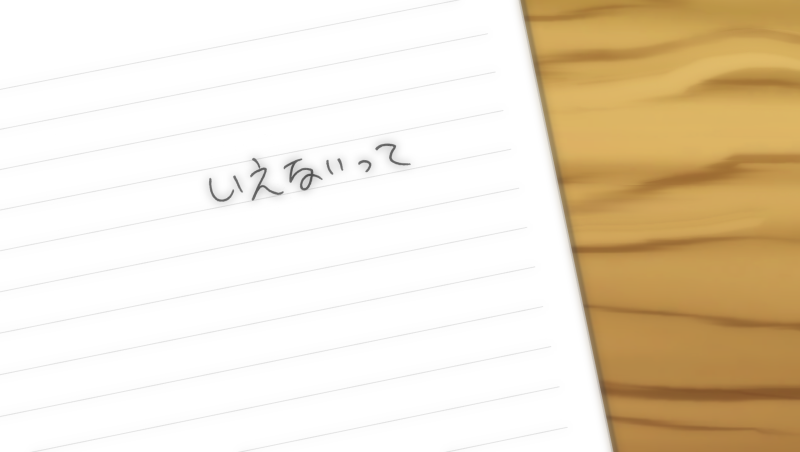 いえないって